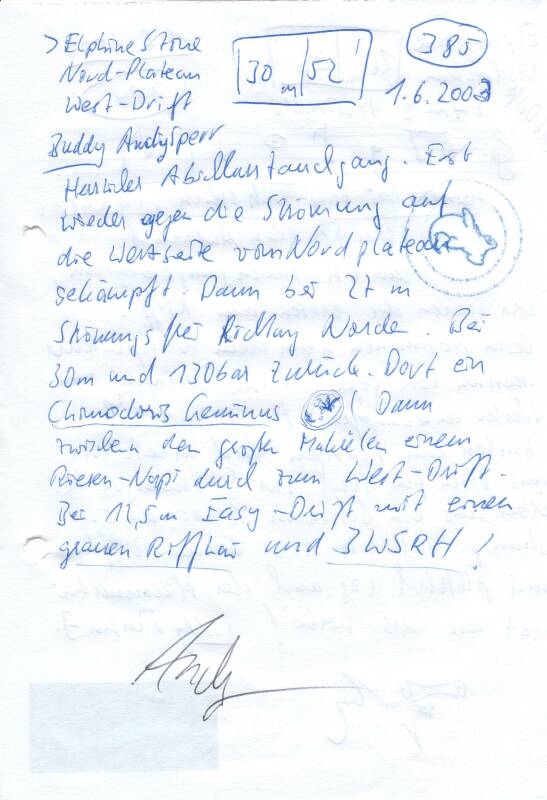 > Elphinestone
Nord-Plateau
West-Drift
30 m 52'
385
1.6.2003
Buddy Andysperr
Abschlusstauchgang. Erst
wieder gegen die Strömung auf
die Westseite vom Nordplateau
gekämpft. Dann bei 27 m
Strömungsfrei Richtung Norden. Bei
30m und 130bar zurück. Dort ein
Chromodoris Geminus ! Dann
zwischen den großen Makrelen einem
Riesen-Napi durch zum West-Drift.
Bei 11,5m Easy-Drift mit einem
grauen Riffhai und 3WSRH!
Andy